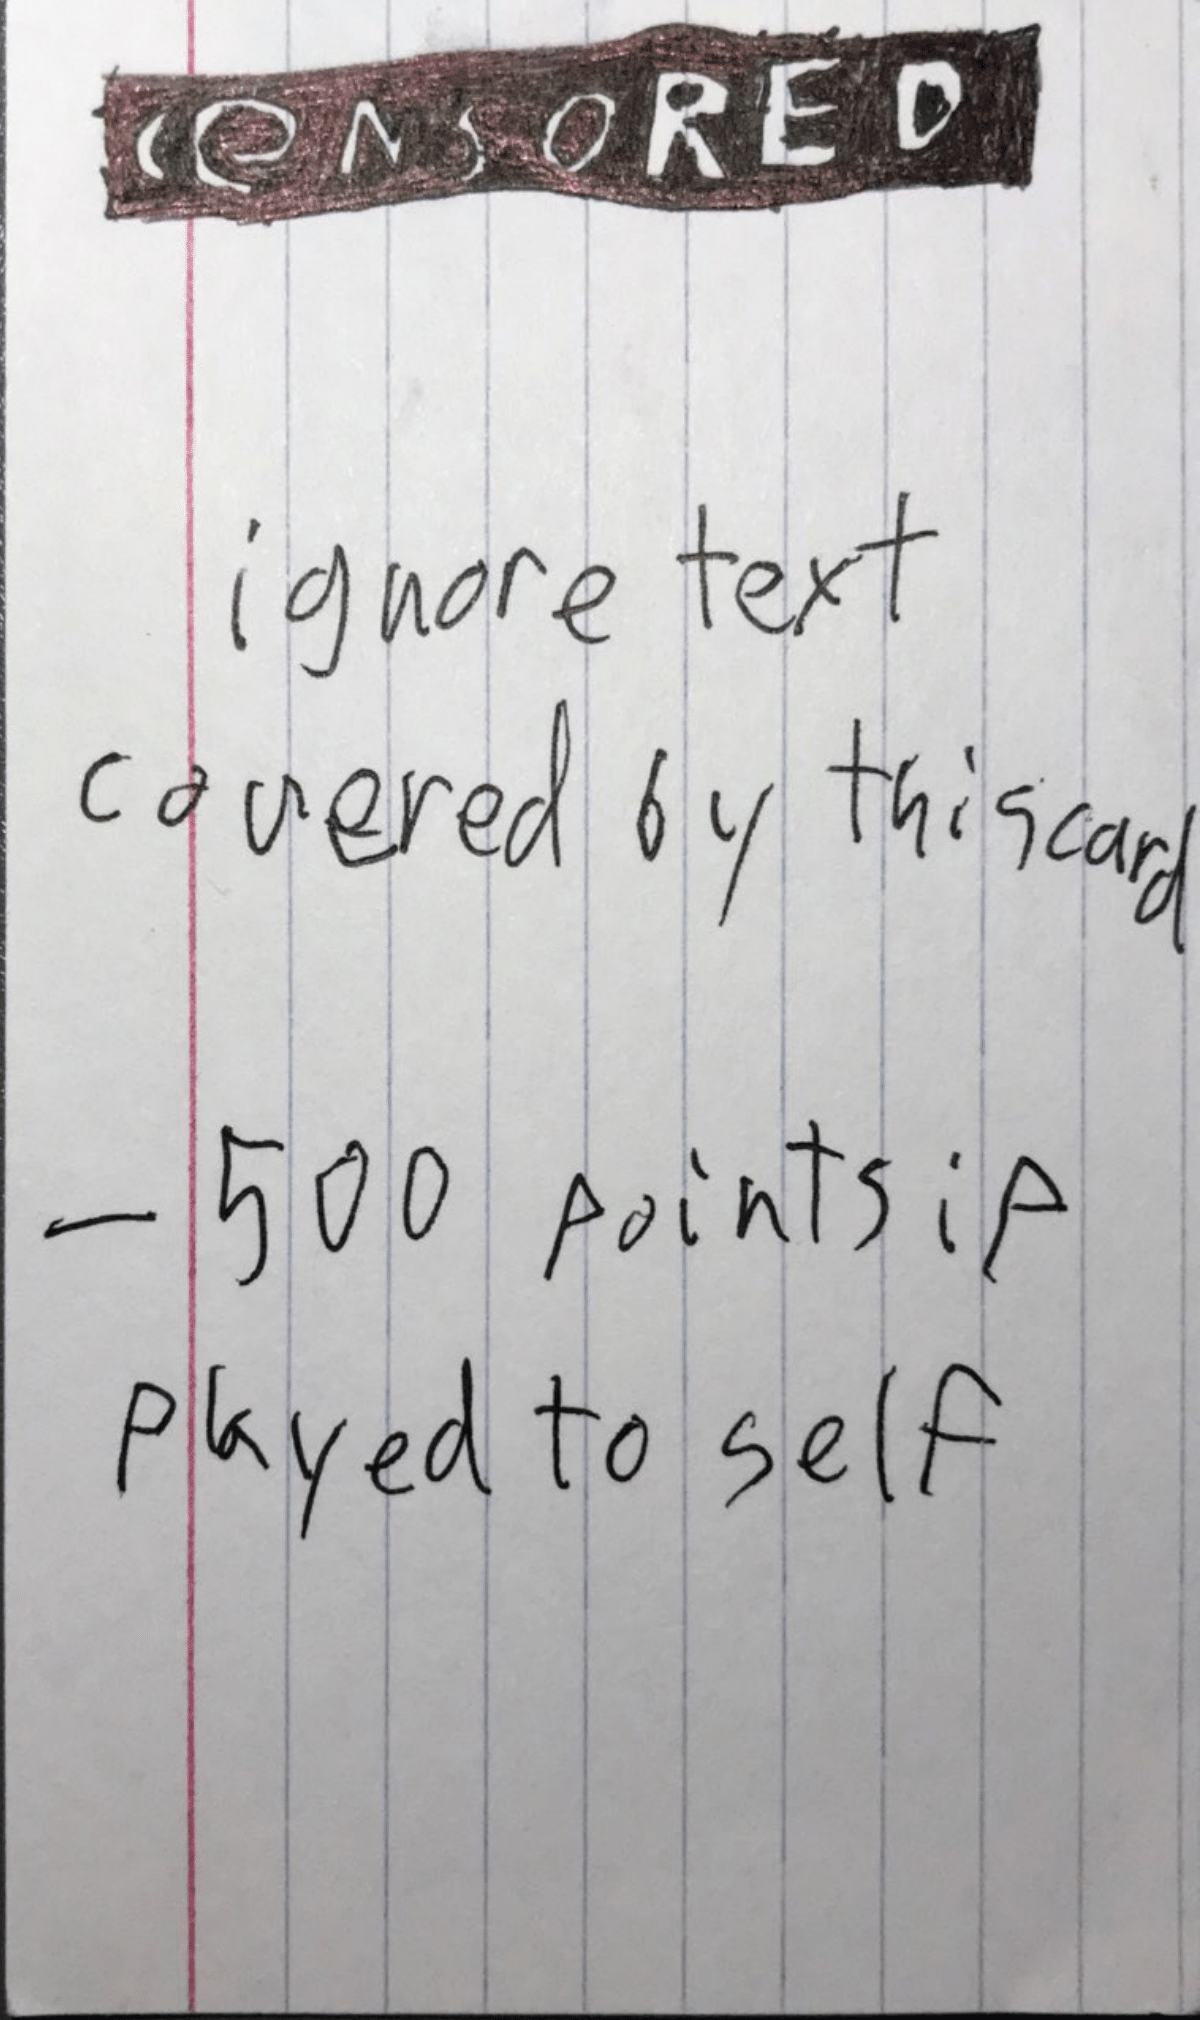 CENSORED
ignore text
covered by this card
-500 points if
played to self